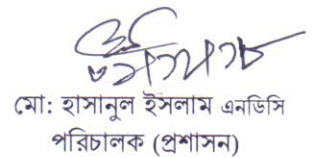 মো: হাসানুল ইসলাম এনডিসি
পরিচালক (প্রশাসন)